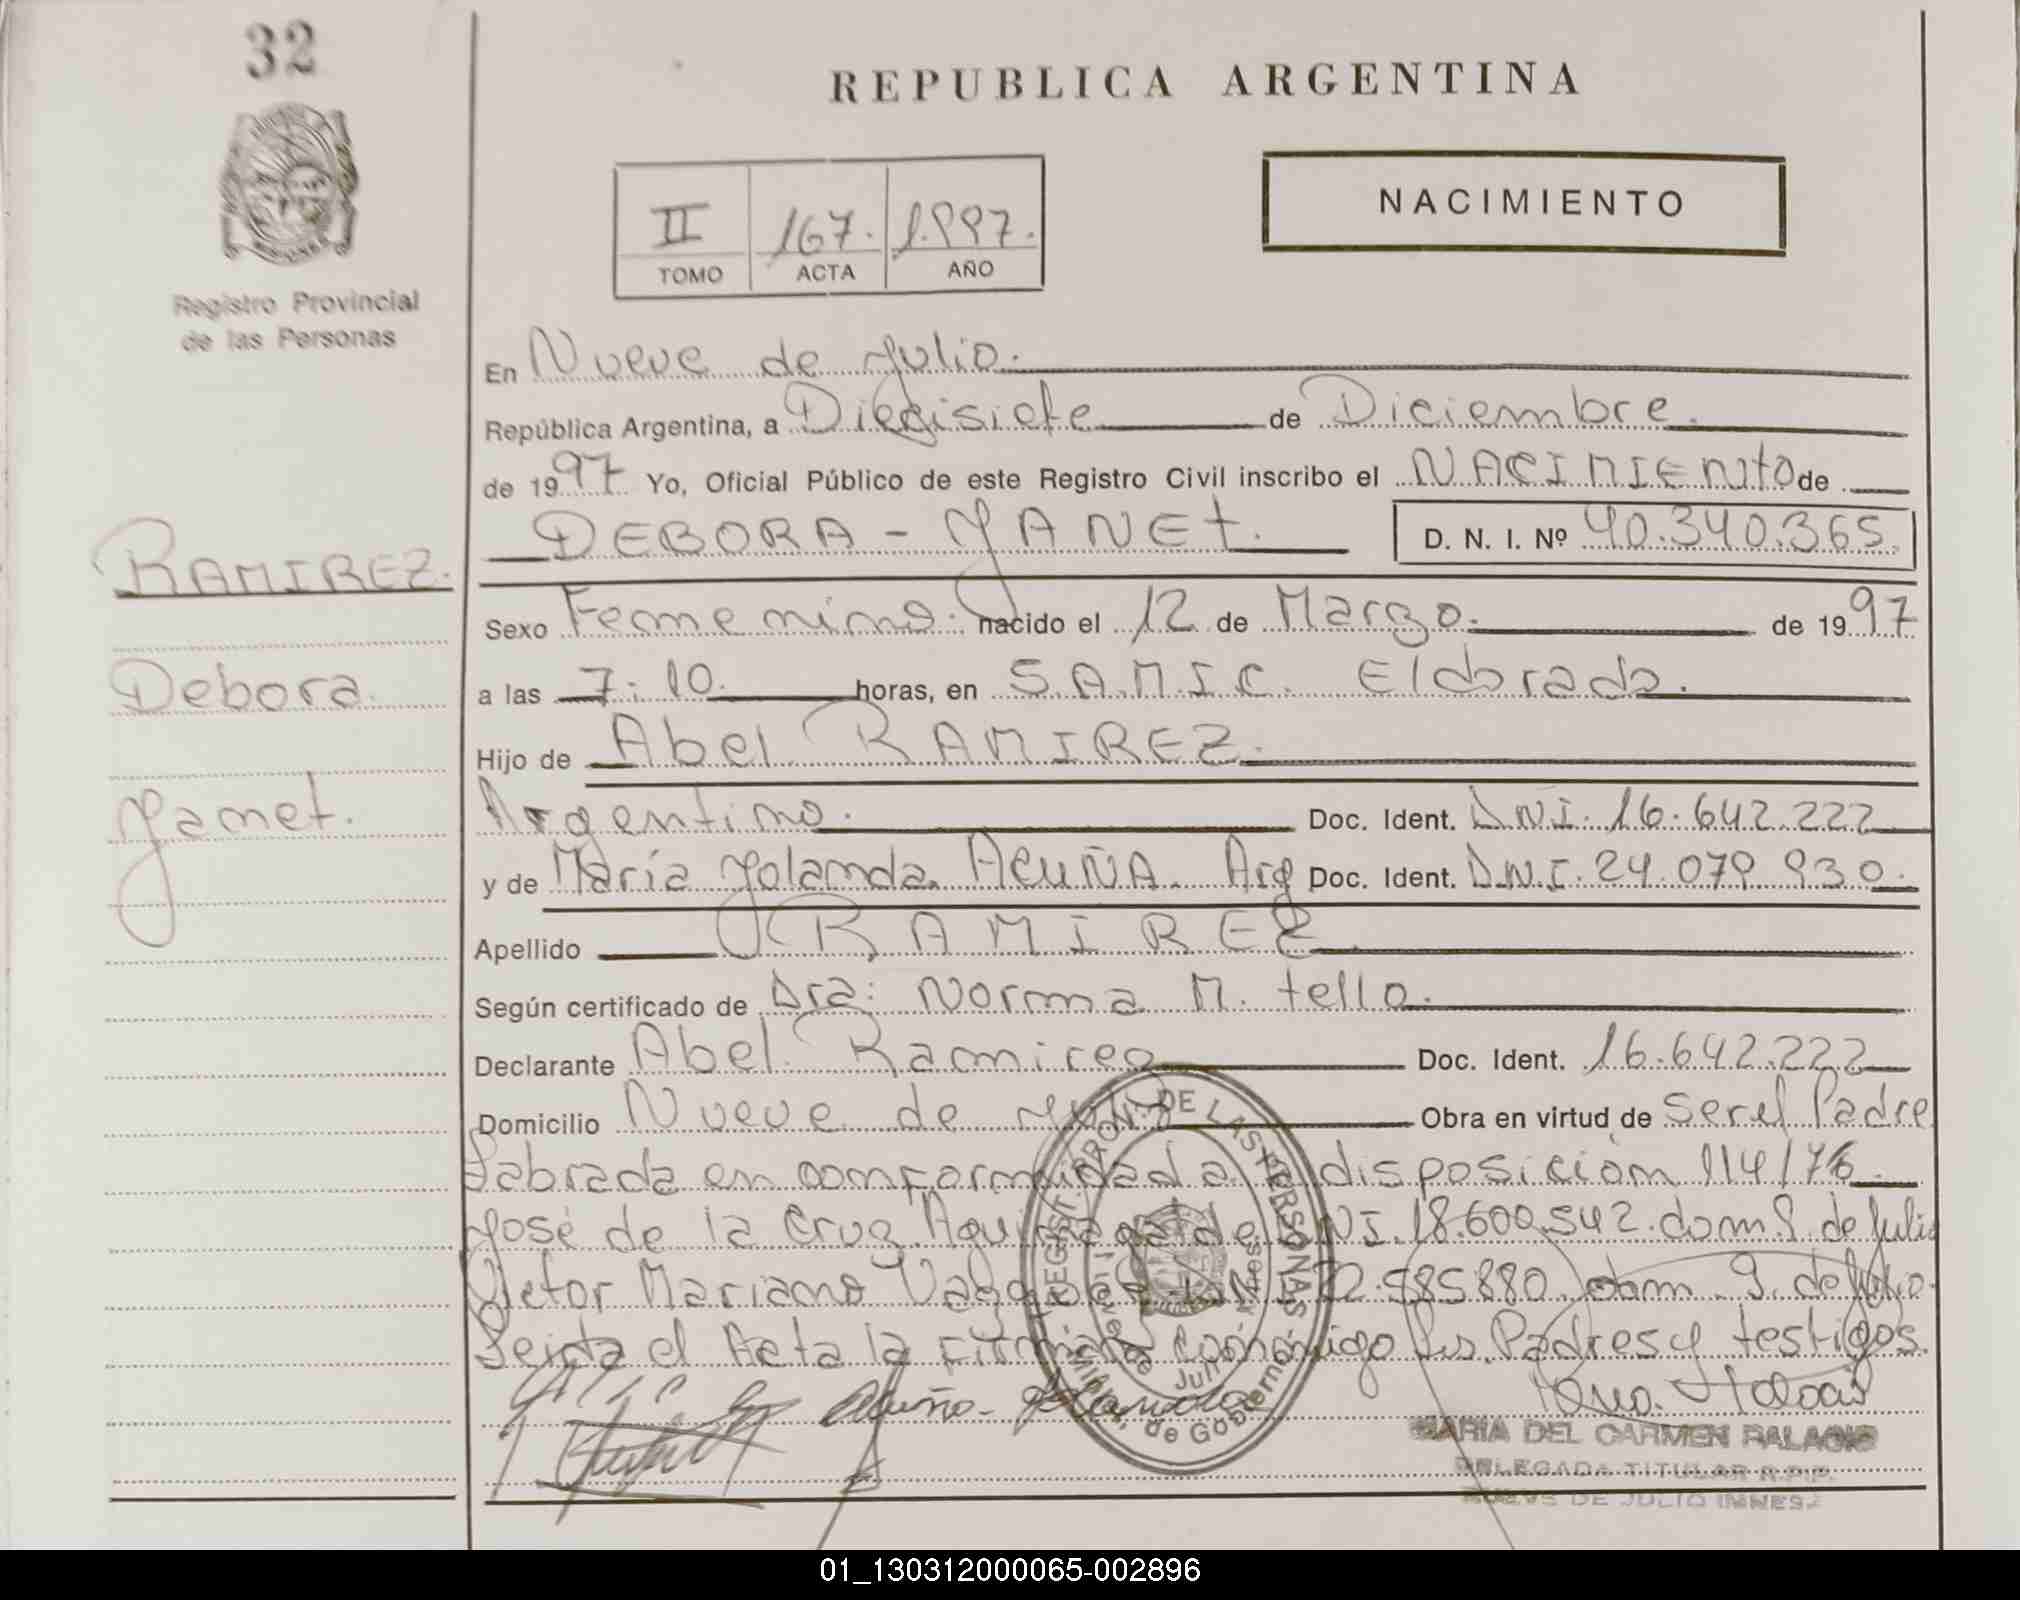 32
REPUBLICA ARGENTINA
NACIMIENTO
II 167. 1.997.
TOMO ACTA AÑO
Registro Provincial
de las Personas
En Nueve de Julio.
República Argentina, a Diecisiete de Diciembre.
de 1997 Yo, Oficial Público de este Registro Civil inscribo el NACIMIENTO de
DEBORA - YANET. D. N. I. Nº 40.340.365.
RAMIREZ.
Sexo Femenino. nacido el 12 de Marzo. de 1997
Debora.
a las 7:10 horas, en S.A.M.I.C. Eldorado.
Hijo de Abel RAMIREZ.
Yanet.
Argentino. Doc. Ident. D.N.I. 16.642.222
y de María Yolanda ACUÑA. Arg Doc. Ident. D.N.I. 24.079.930.
Apellido RAMIREZ
Según certificado de Dra: Norma M. tello.
Declarante Abel Ramirez Doc. Ident. 16.642.222
Domicilio Nueve de Julio Obra en virtud de Ser el Padre
Labrada en conformidad a disposición 114/76
José de la Cruz D.N.I. 18.600.542. dom 9. de Julio
Victor Mariano D.N.I. 22.585880 dom. 9. de Julio.
Leida el Acta la Firman conmigo los Padres y testigos.
Acuña Yolanda
REGIST. PROV. DE LAS PERSONAS
Nueve de Julio Mnes.
Minist. de Gobierno
MARIA DEL CARMEN PALACIO
DELEGADA TITULAR R.P.P.
NUEVE DE JULIO (MNES.)
01_130312000065-002896